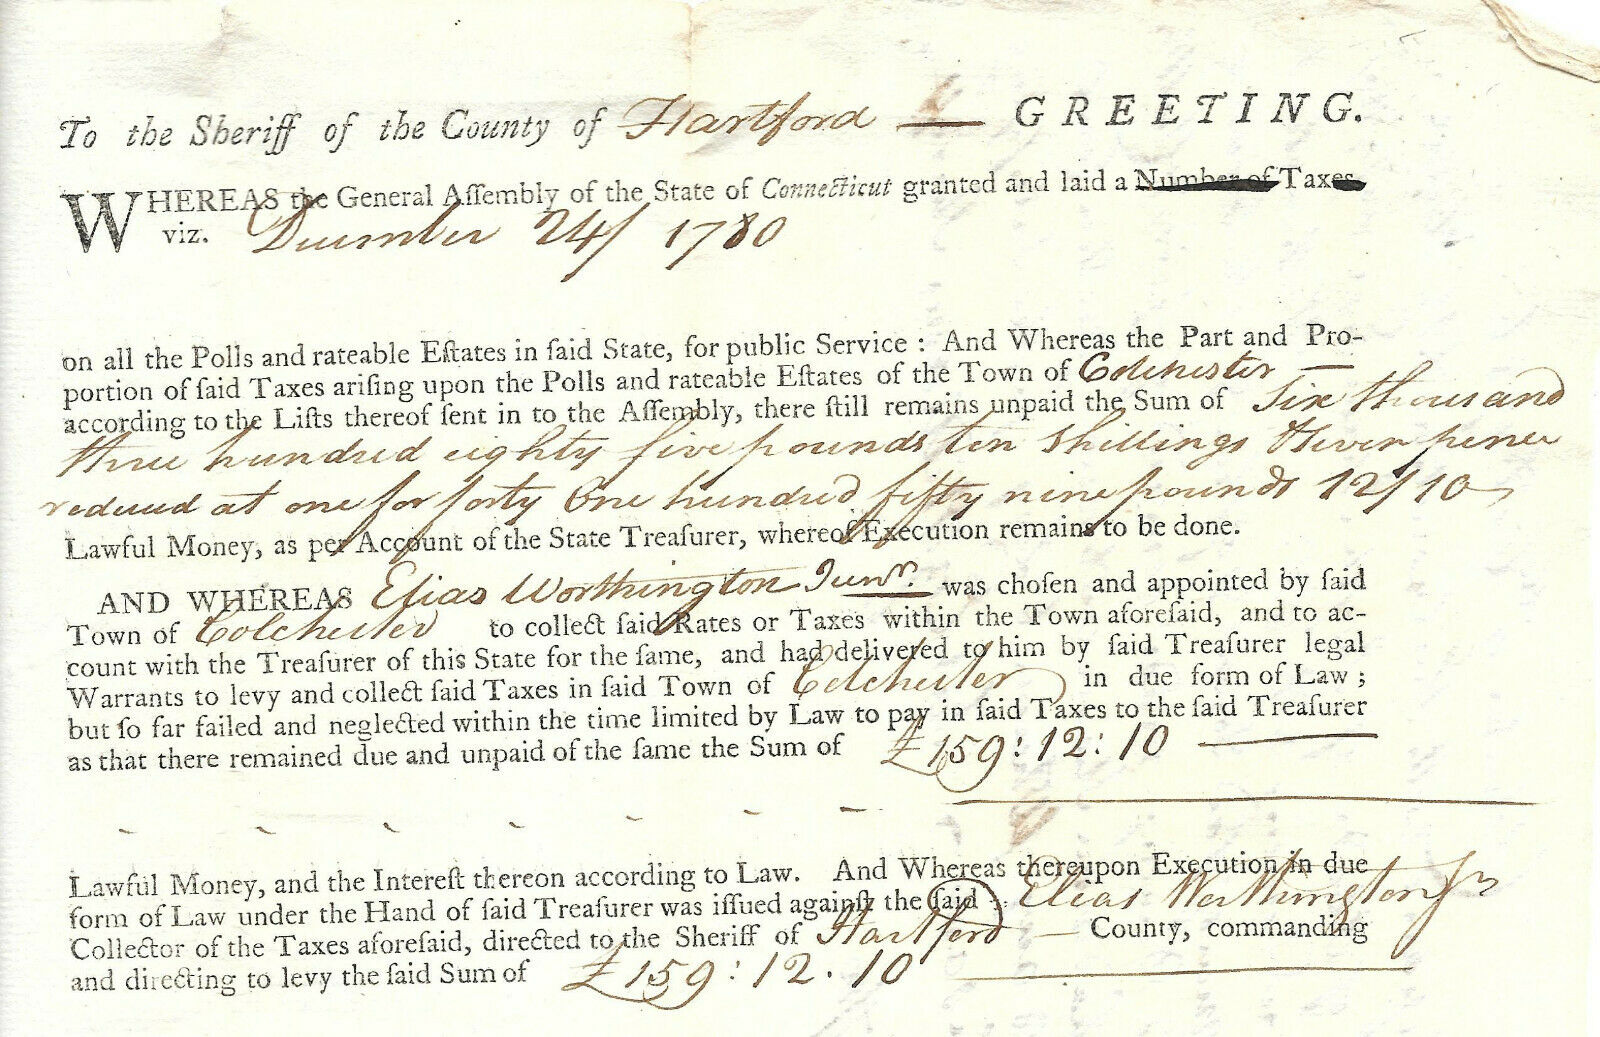 To the Sheriff of the County of Hartford — GREETING.
WHEREAS the General Aſſembly of the State of Connecticut granted and laid a Number of Taxes
viz. December 24/ 1780
on all the Polls and rateable Eſtates in ſaid State, for public Service : And Whereas the Part and Pro-
portion of ſaid Taxes ariſing upon the Polls and rateable Eſtates of the Town of Colchester —
according to the Liſts thereof ſent in to the Aſſembly, there ſtill remains unpaid the Sum of Six thousand
three hundred eighty five pounds ten Shillings & seven pence
reduced at one for forty One hundred fifty nine pounds 12/10
Lawful Money, as per Account of the State Treaſurer, whereof Execution remains to be done.
AND WHEREAS Elias Worthington Junr. was choſen and appointed by ſaid
Town of Colchester to collect ſaid Rates or Taxes within the Town aforeſaid, and to ac-
count with the Treaſurer of this State for the ſame, and had delivered to him by ſaid Treaſurer legal
Warrants to levy and collect ſaid Taxes in ſaid Town of Colchester in due form of Law ;
but ſo far failed and neglected within the time limited by Law to pay in ſaid Taxes to the ſaid Treaſurer
as that there remained due and unpaid of the ſame the Sum of £159:12:10 —
Lawful Money, and the Intereſt thereon according to Law. And Whereas thereupon Execution in due
form of Law under the Hand of ſaid Treaſurer was iſſued againſt the ſaid Elias Worthington Jr
Collector of the Taxes aforeſaid, directed to the Sheriff of Hartford — County, commanding
and directing to levy the ſaid Sum of £159:12.10 —